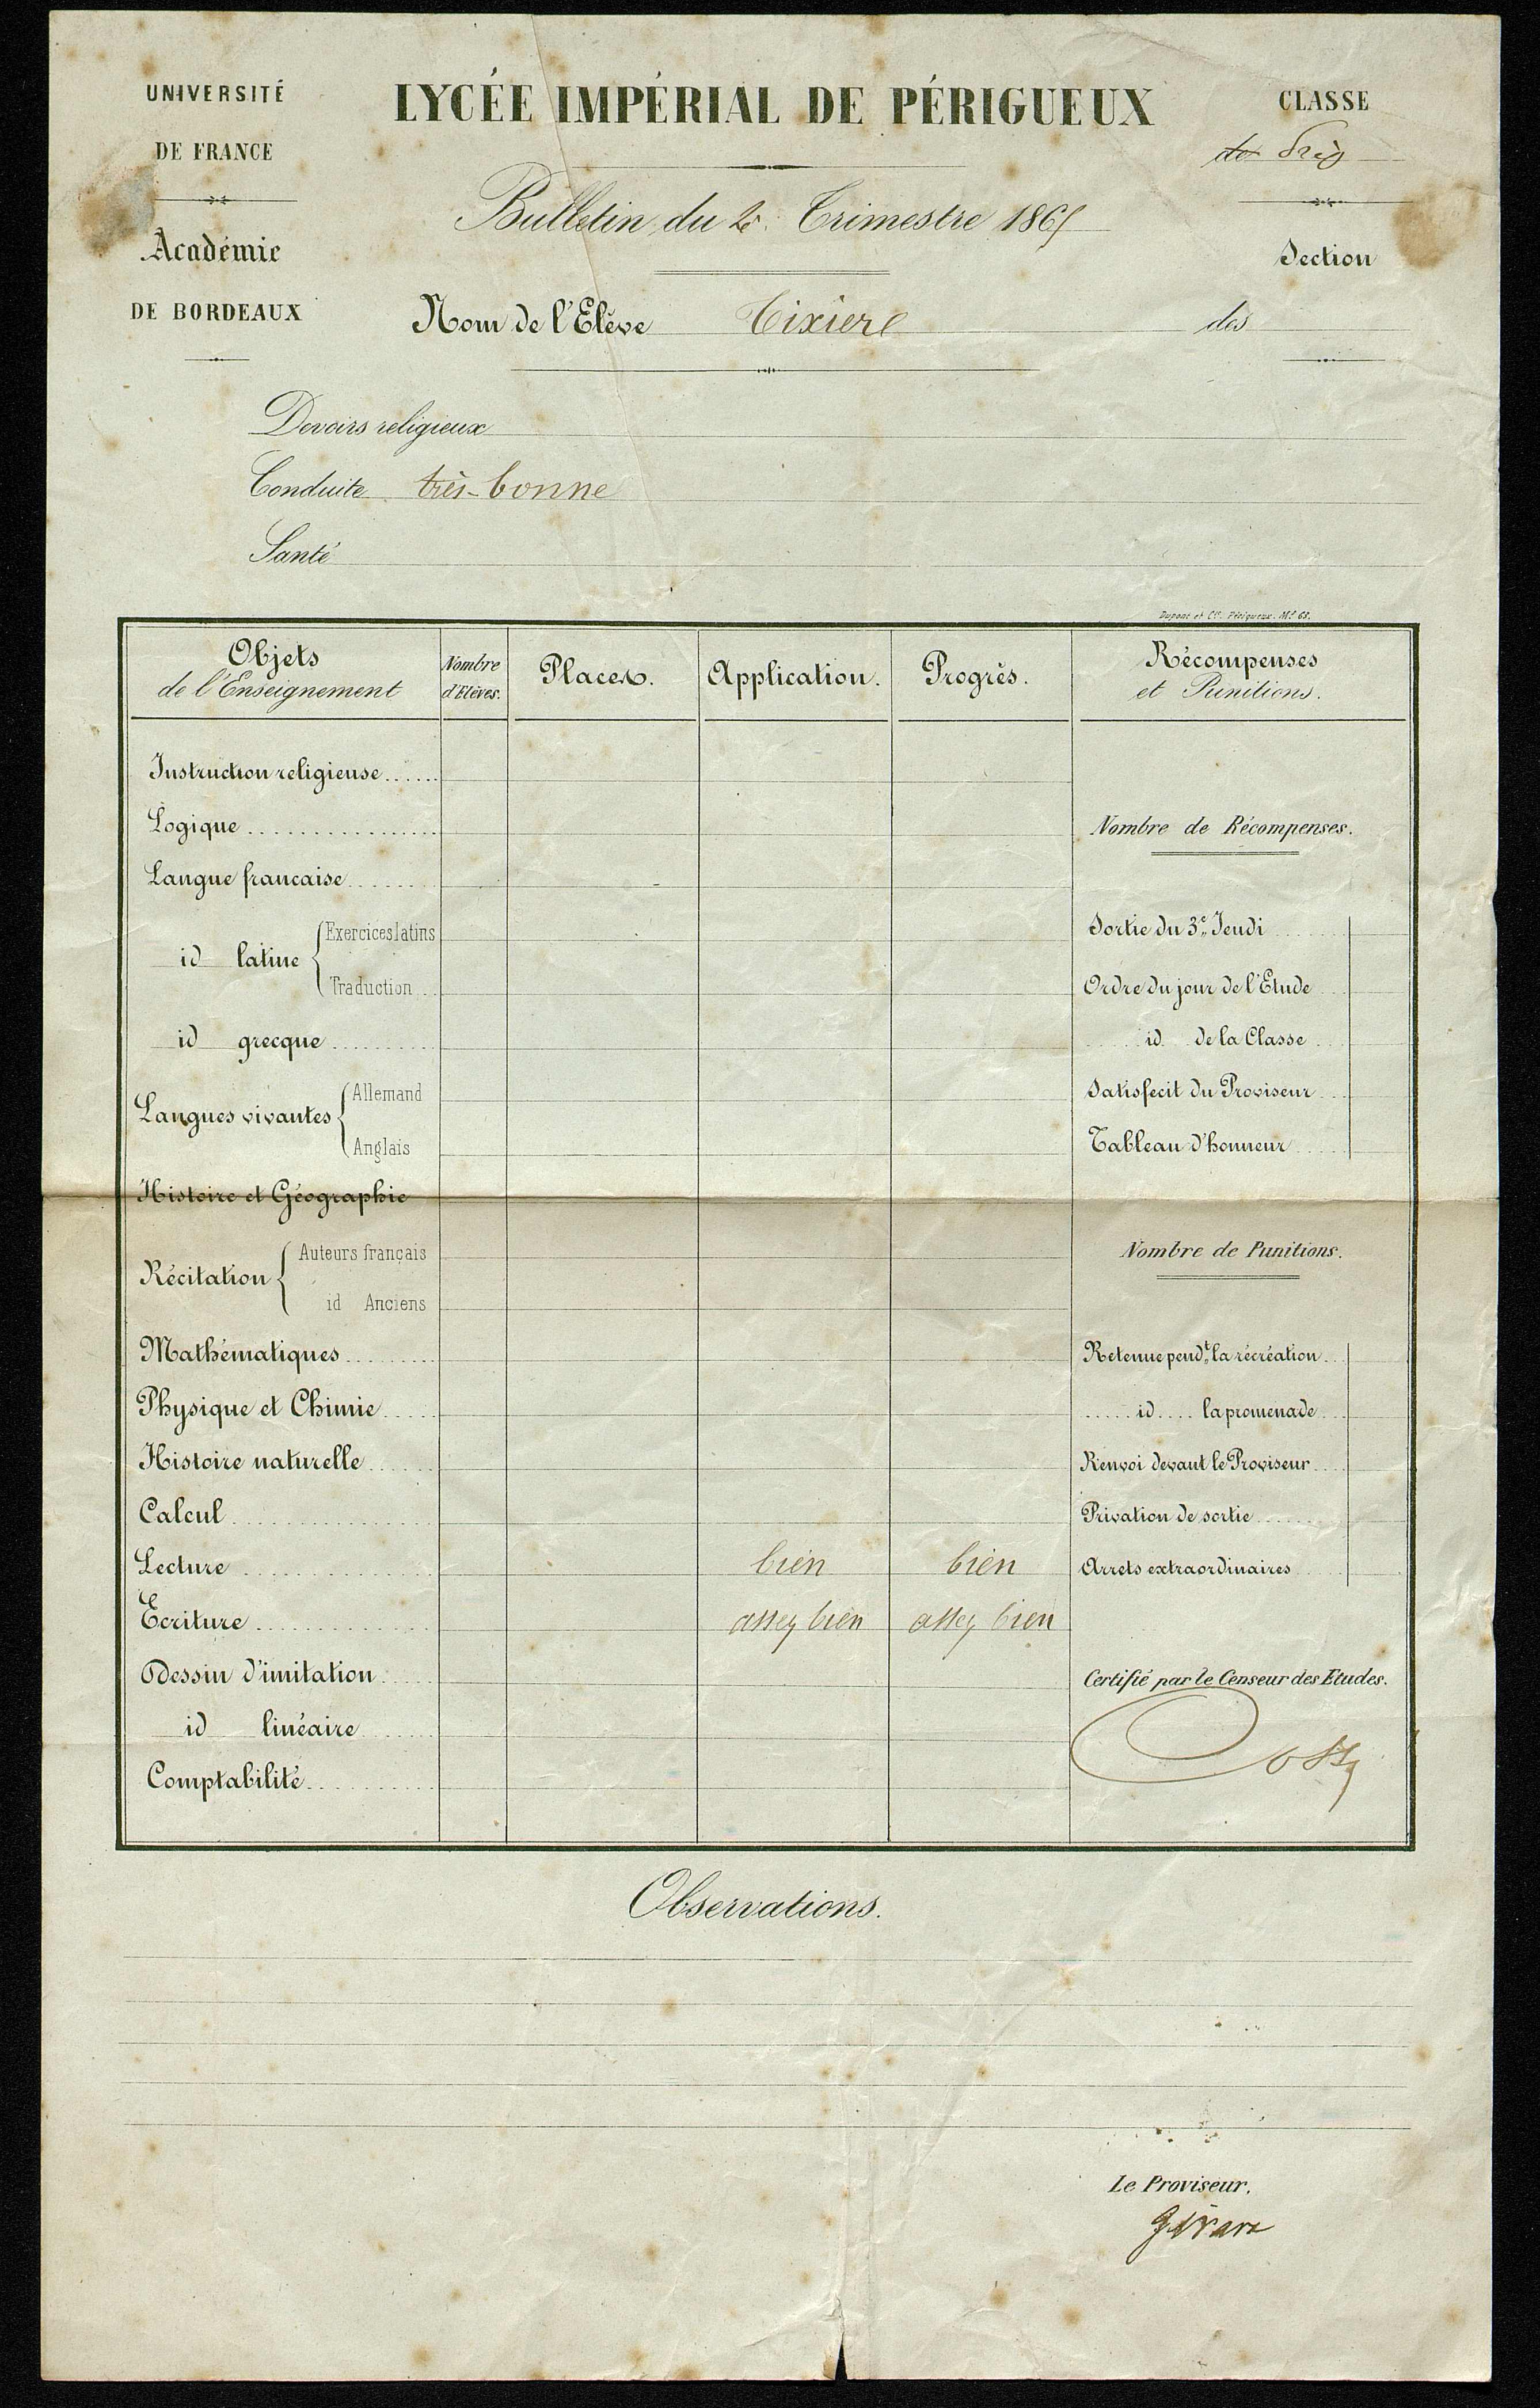 UNIVERSITÉ
DE FRANCE
Académie
DE BORDEAUX
LYCÉE IMPÉRIAL DE PÉRIGUEUX
Bulletin du 2e. Trimestre 1865
Nom de l'Elève Tixiere
CLASSE
de
Section
des
Devoirs religieux
Conduite très-bonne
Santé
Dupont et Cie. Périgueux. Mt 65.
Objets de l'Enseignement
Nombre d'Elèves.
Places.
Application.
Progrès.
Récompenses et Punitions.
Instruction religieuse
Logique
Langue francaise
id latine Exercices latins
Traduction
id grecque
Langues vivantes Allemand
Anglais
Histoire et Géographie
Récitation Auteurs français
id Anciens
Mathématiques
Physique et Chimie
Histoire naturelle
Calcul
Lecture bien bien
Ecriture assez bien assez bien
Dessin d'imitation
id linéaire
Comptabilité
Nombre de Récompenses.
Sortie du 3e. Jeudi
Ordre du jour de l'Etude
id. de la Classe
Satisfecit du Proviseur
Tableau d'honneur
Nombre de Punitions.
Retenue pendt. la récréation
id la promenade
Renvoi devant le Proviseur
Privation de sortie
Arrets extraordinaires
Certifié par le Censeur des Etudes.
Observations.
Le Proviseur,